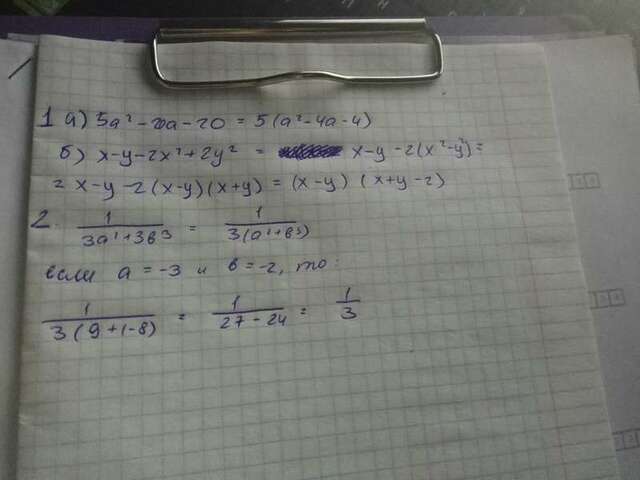 1 а) 5a² - 20a - 20 = 5(a² - 4a - 4)
б) x - y - 2x² + 2y² = x - y - 2(x² - y²) =
= x - y - 2(x - y)(x + y) = (x - y) (x + y - 2)
2. 1/(3a² + 3b³) = 1/(3(a² + b³))
если a = -3 и b = -2, то:
1/(3(9 + (-8)) = 1/(27 - 24) = 1/3